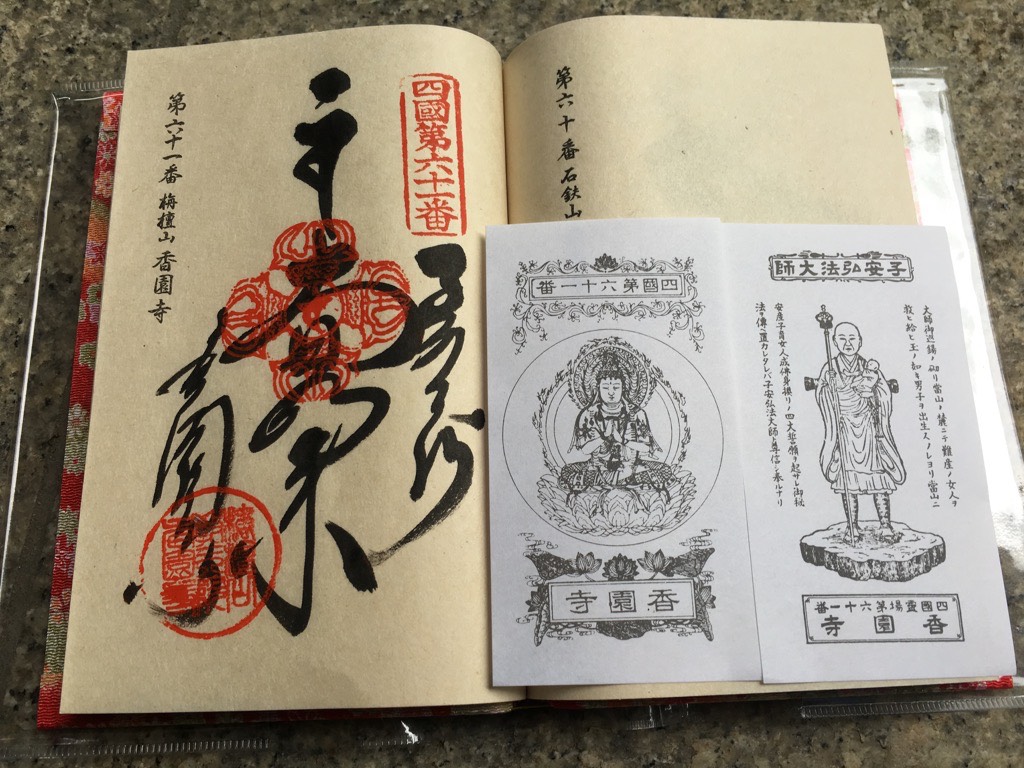 四國第六十一番
香園寺
第六十一番 栴檀山 香園寺
第六十番 石鈇山
四國第六十一番
香園寺
子安弘法大師
大師御巡錫ノ砌リ當山ノ麓ニテ難産ノ女人ヲ
救ヒ給ヒ玉ノ如キ男子ヲ出生スソレヨリ當山ニ
安産子育女人成佛身換リノ四大誓願ヲ起サレ御秘
法ヲ傳ヘ置カレタレバ子安弘法大師ト尊信シ奉ルナリ
四國靈場第六十一番
香園寺